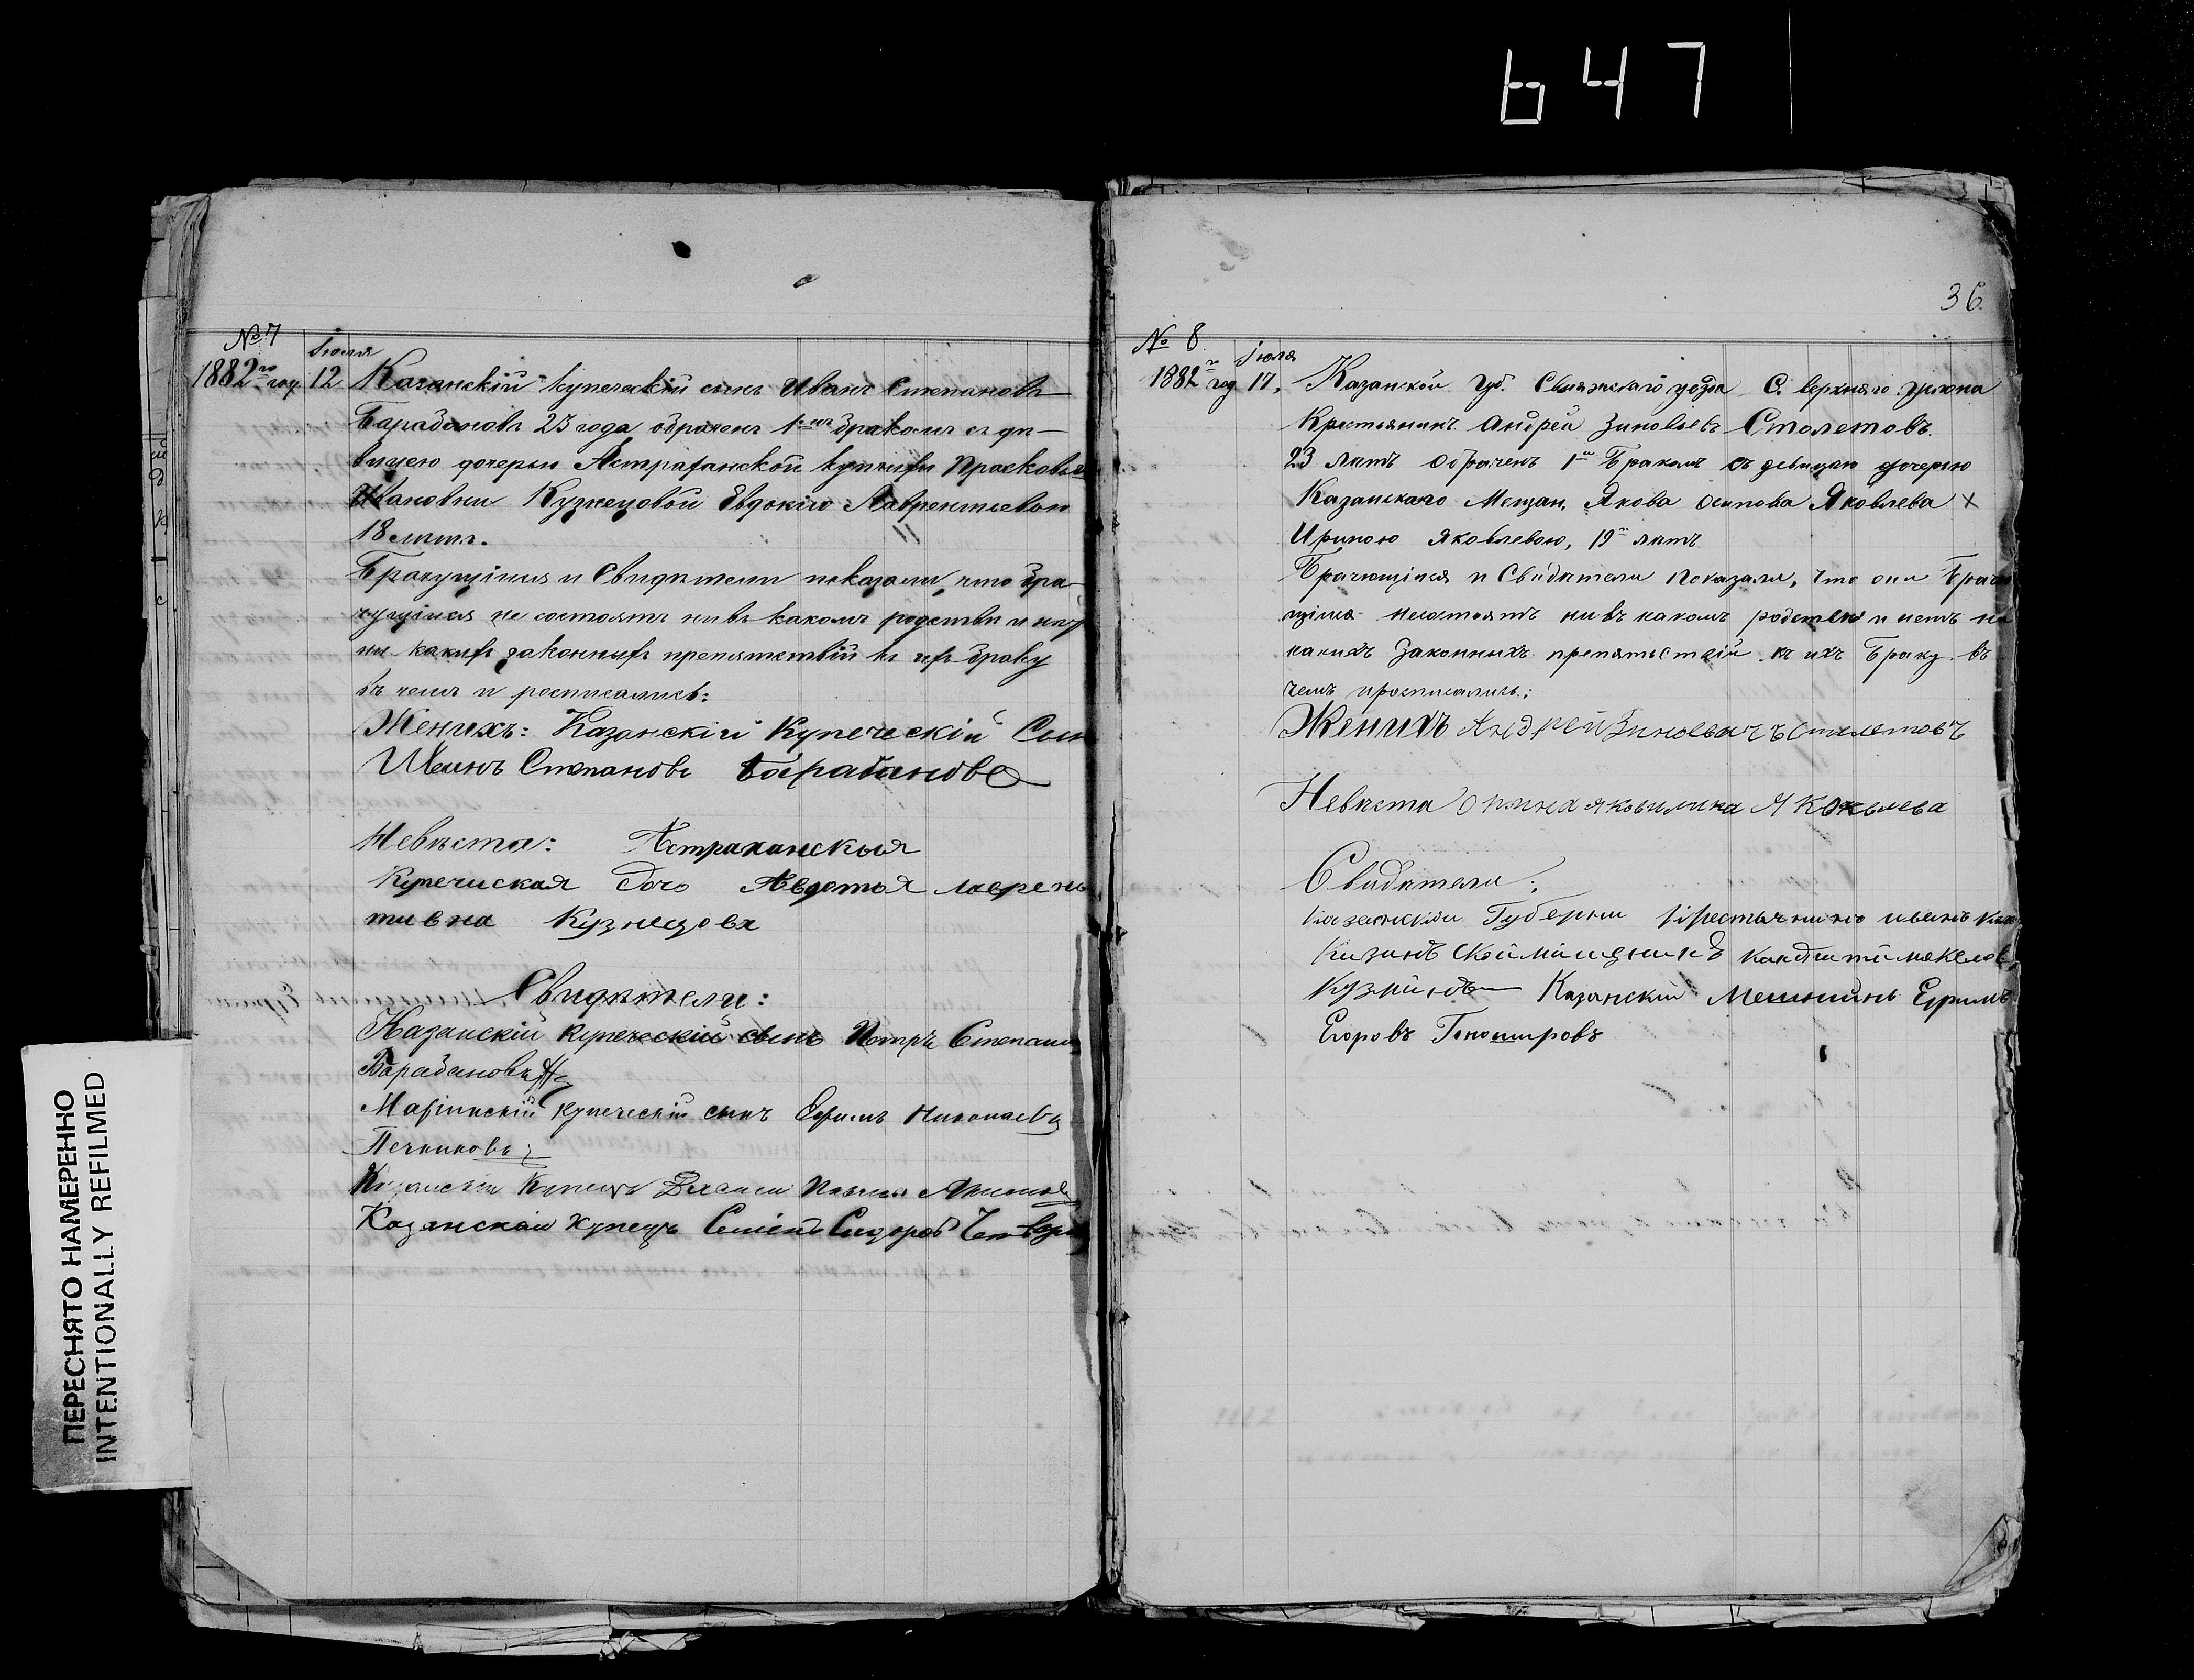 647
36
№ 7
1882го год. Іюля 12 Казанскій купеческій сынъ Иванъ Степановъ
Барабановъ 23 года обраченъ 1-мъ бракомъ съ дѣ-
вицею дочерью Астраханской купчихи Прасковьи
Ивановны Кузнецовой Евдокію Лаврентьевой
18 лѣтъ.
Бракущіися и Свидѣтели показали, что бра-
чущіися не состоятъ ни въ какомъ родствѣ и нѣтъ
ни какихъ законныхъ препятствій къ ихъ браку
въ чемъ и росписались:
Женихъ: Казанскій Купеческій Сын
Иванъ Степановъ Барабановъ
Невѣста: Астраханская
Купечиская дочь Авдотья лаврень
тивна Кузнецова
Свидѣтели:
Казанскій купеческій сынъ Петръ Степанъ
Барабановъ
Маріинскій купеческій сынъ Ефимъ Николаевъ
Печниковъ
Казанскій Купецъ
Казанскай купецъ Семіенъ Сидоровъ
№ 8
1882го год Іюля 17, Казанской Губ. Свіяжскаго уезда С. верхняго
Крестьянинъ Андрей Зиновьевъ Столетовъ.
23 лѣтъ Обраченъ 1м Бракомъ съ девицаю дочерью
Казанскаго Мещан, Якова Осипова Яковлева х
Ириною Яковлевою, 19 лѣтъ
Брачющіися и Свидѣтели показали, что они Брачу
щіися несостоятъ ни въ какомъ родствѣ и нетъ ни
какихъ Законныхъ препятьствій къ ихъ Браку въ
чемъ и росписались:
Женихъ Андрей Зиновьевичъ Столетовъ
Невѣста Орина Яковлева
Свидѣтели:
Казанской Губерни крестьянинъ иванъ
Кузминъ Казанскій Мещнинъ Ефимъ
Егоровъ
ПЕРЕСНЯТО НАМЕРЕННО
INTENTIONALLY REFILMED